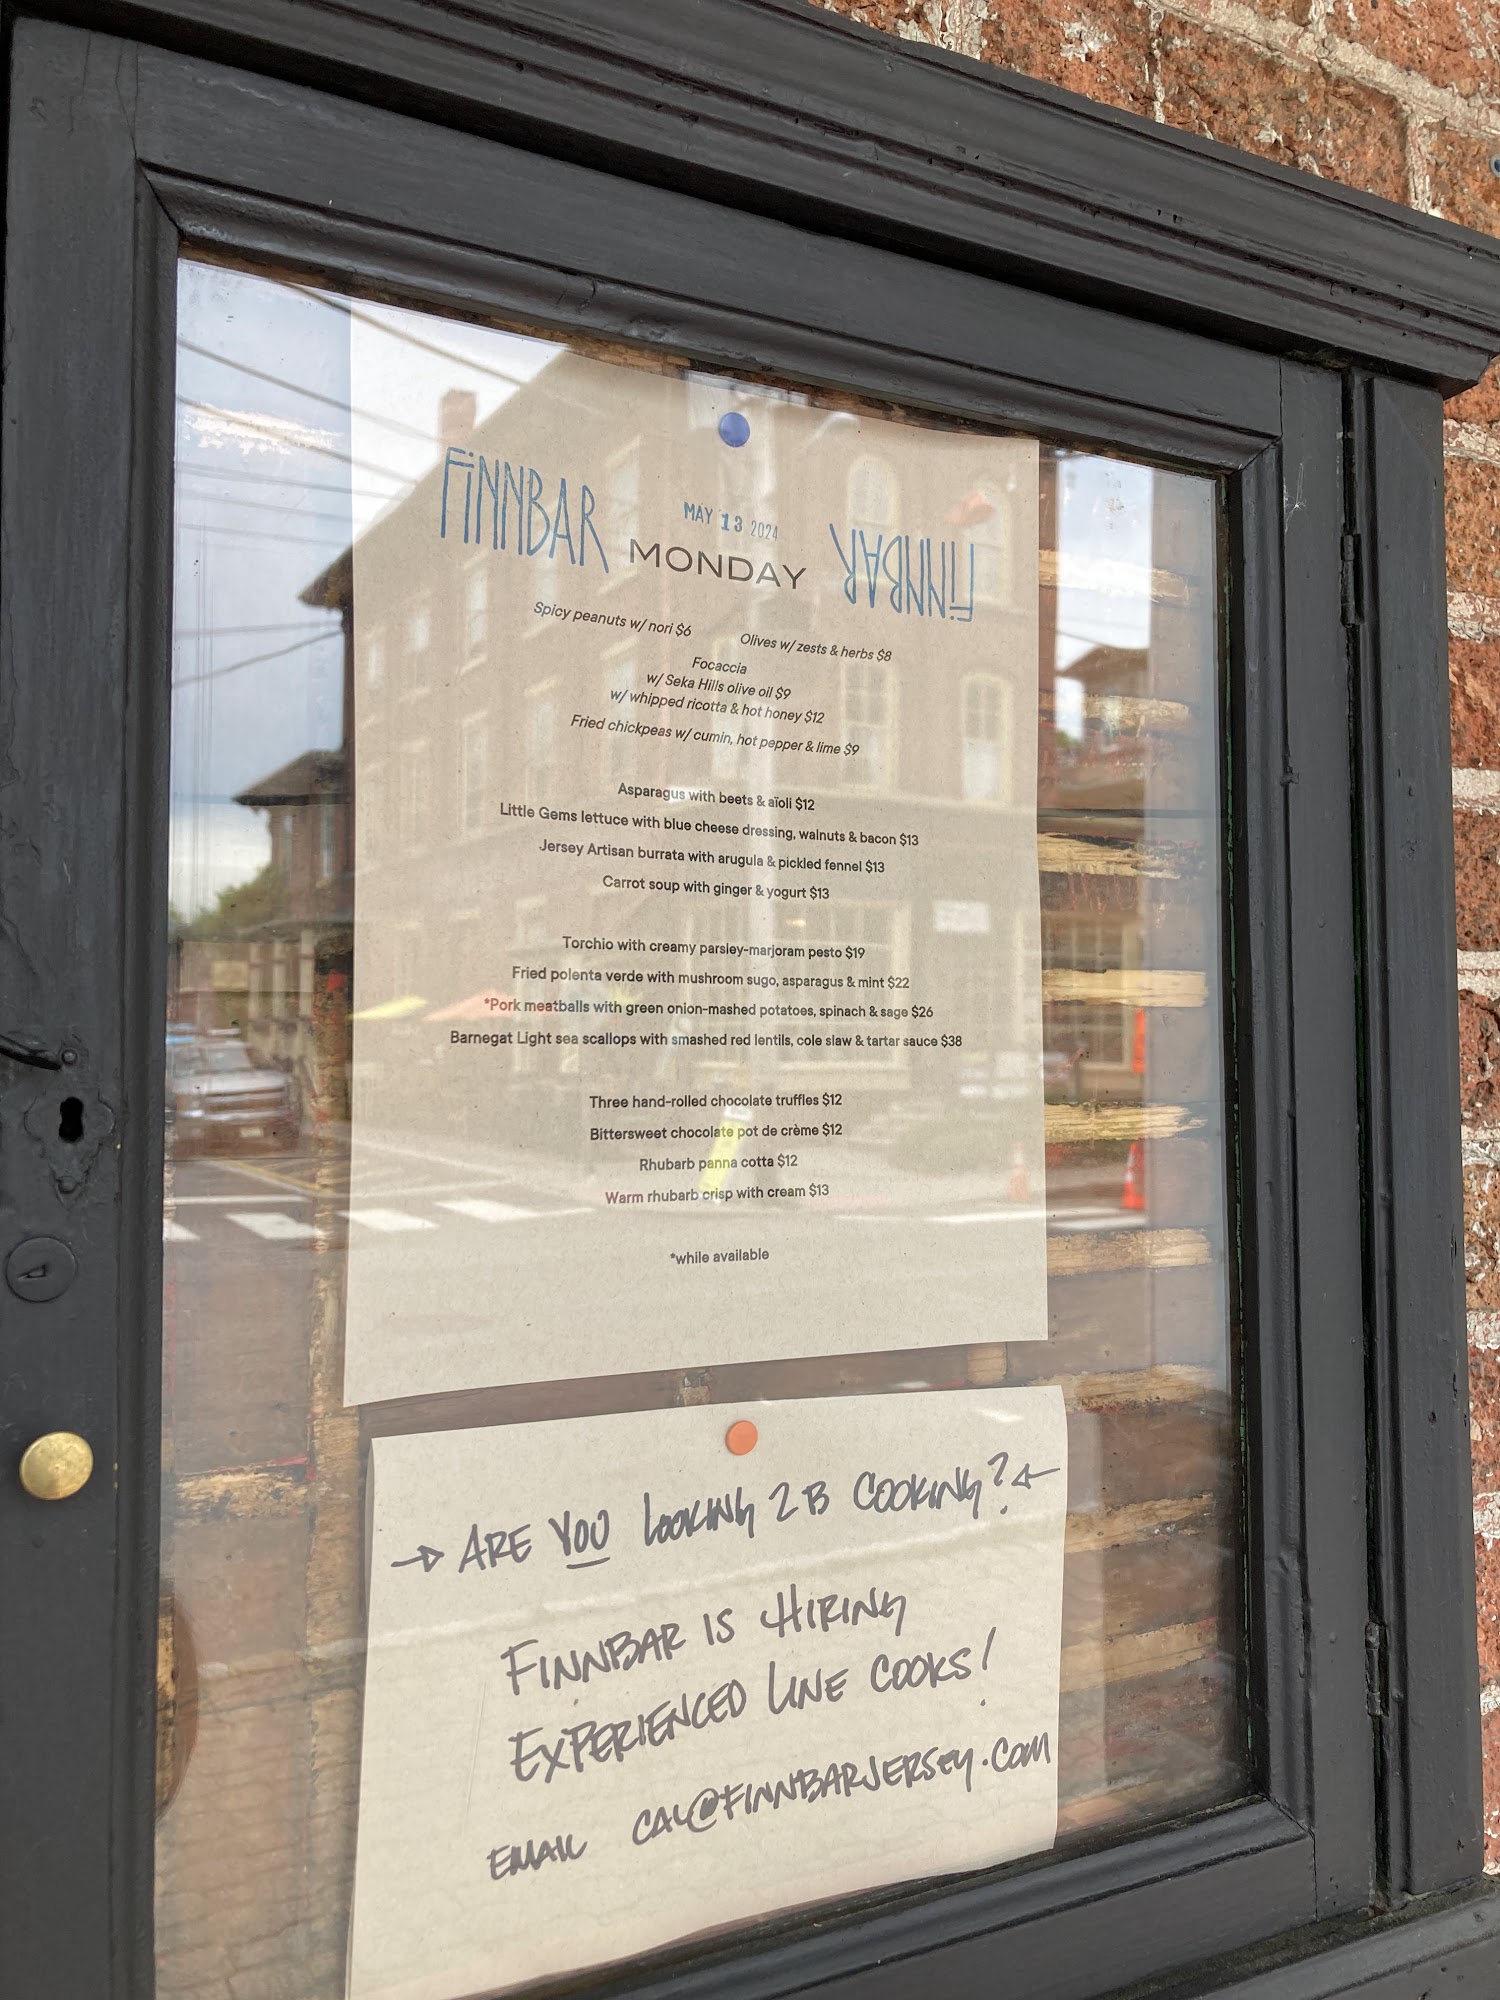 FiNNBAR
MAY 13 2024
MONDAY
FiNNBAR
Spicy peanuts w/ nori $6
Olives w/ zests & herbs $8
Focaccia
w/ Seka Hills olive oil $9
w/ whipped ricotta & hot honey $12
Fried chickpeas w/ cumin, hot pepper & lime $9
Asparagus with beets & aïoli $12
Little Gems lettuce with blue cheese dressing, walnuts & bacon $13
Jersey Artisan burrata with arugula & pickled fennel $13
Carrot soup with ginger & yogurt $13
Torchio with creamy parsley-marjoram pesto $19
Fried polenta verde with mushroom sugo, asparagus & mint $22
*Pork meatballs with green onion-mashed potatoes, spinach & sage $26
Barnegat Light sea scallops with smashed red lentils, cole slaw & tartar sauce $38
Three hand-rolled chocolate truffles $12
Bittersweet chocolate pot de crème $12
Rhubarb panna cotta $12
Warm rhubarb crisp with cream $13
*while available
→ ARE YOU LOOKING 2 B COOKING? ←
FINNBAR IS HIRING
EXPERIENCED LINE COOKS!
EMAIL CAL@FINNBARJERSEY.COM